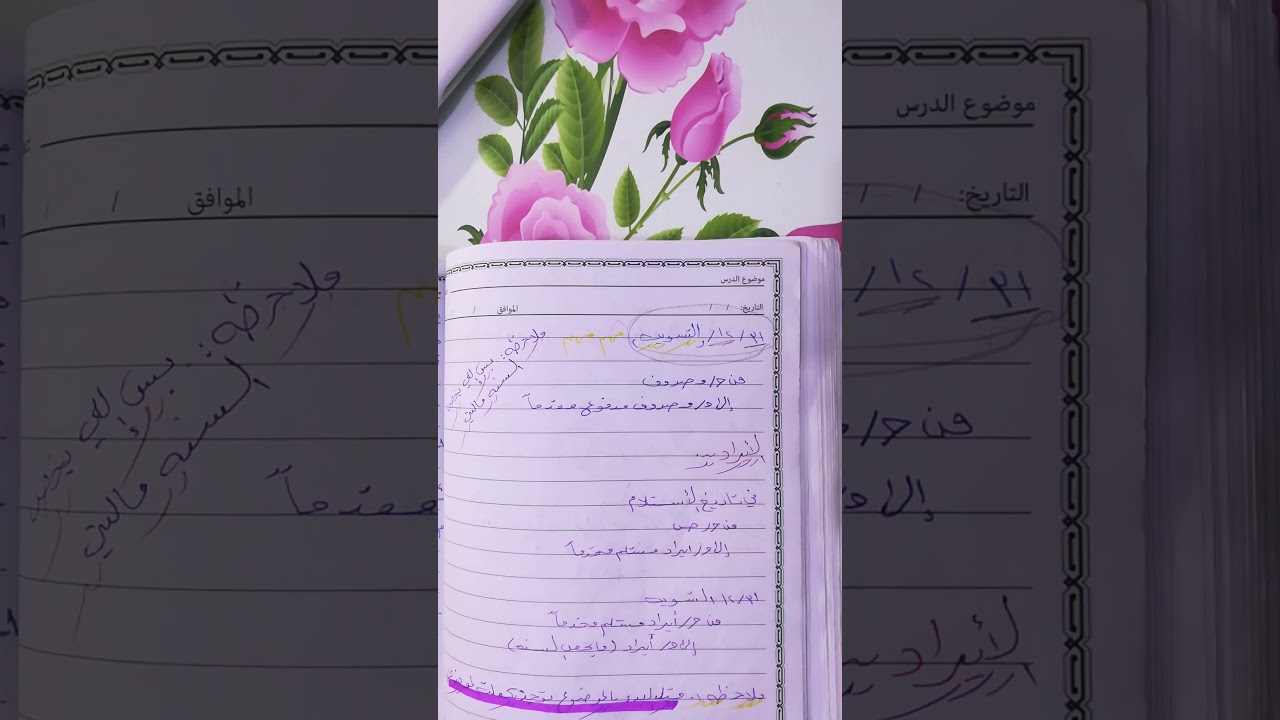 موضوع الدرس
التاريخ: / / الموافق / /
٣١/١٢/ التسوية مهم مهم
ملاحظة: بس اللي يخص السنة مالية
من ح/ مصروف
إلى ح/ مصروف مدفوع مقدماً
الأيرادين
في تاريخ الأستلام
من ح/
إلى ح/ ايراد مستلم مقدماً
٣١/١٢ التسوية
من ح/ أيراد مستلم مقدماً
إلى ح/ أيراد (ما يخص السنة)
ملاحظة: